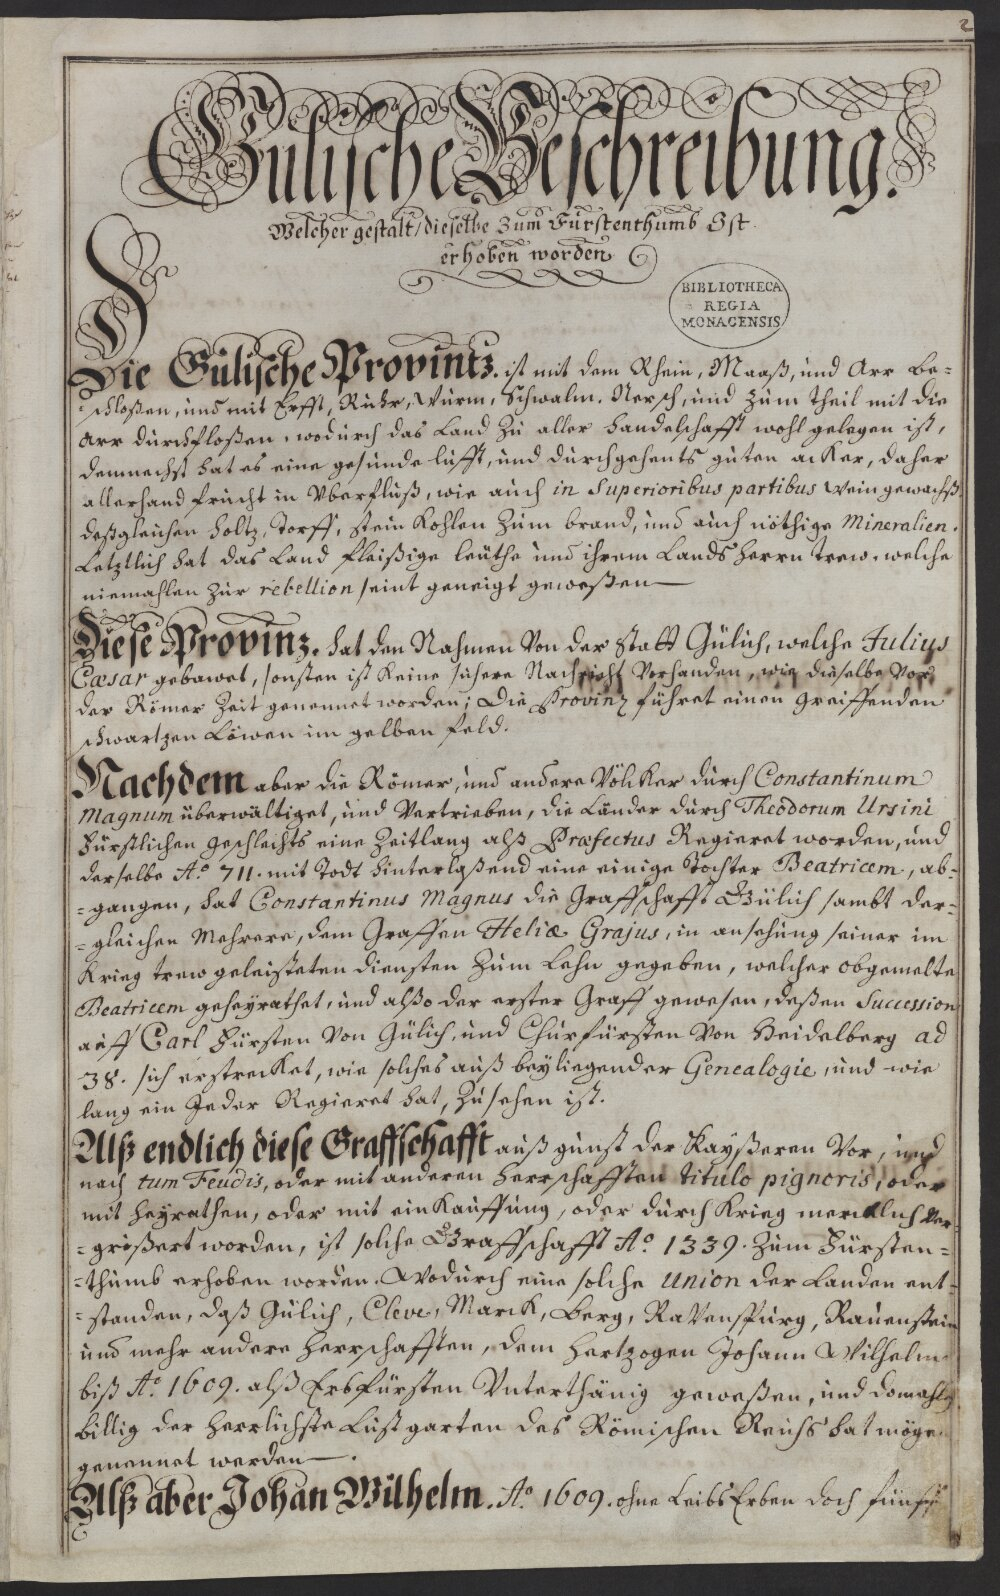 2
Gülische Beschreibung.
Welcher gestalt/dieselbe zum Fürstenthumb Ist
erhoben worden
BIBLIOTHECA
REGIA
MONACENSIS
Die Gülische Provintz. ist mit dem Rhein, Maaß, und Arr be=
=schloßen, und mit Erfft, Ruhr, Wurm, Schwalm, Nersch, und zum theil mit die
Arr durchfloßen, wodurch das Land zu aller handelschafft wohl gelegen ist,
demnechst hat es eine gesunde lufft, und durchgehents guten acker, daher
allerhand frucht in Vberfluß, wie auch in Superioribus partibus Weingewachß
deßgleichen holtz, Torff, stein Kohlen zum brand, und auch nöthige Mineralien.
Letztlich hat das Land fleißige leüthe und ihrem Lands herrn trew, welche
niemahlen zur rebellion seint geneigt geweßen
Diese Provinz. hat den Nahmen Von der statt Gülich, welche Julius
Cæsar gebawet, sonsten ist keine sichere Nachricht Vorhanden, wie dieselbe Vor
der Römer Zeit genennet worden; Die Provinz führet einen greiffenden
schwartzen Löwen im gelben feld.
Nachdem aber die Römer, und andere Völcker durch Constantinum
Magnum überwältiget, und Vertrieben, die Länder durch Theodorum Ursini
Fürstlichen geschlechts eine Zeitlang alß Præfectus Regieret worden, und
derselbe Aº 711. mit Todt hinterlaßend eine einige Tochter Beatricem, ab=
=gangen, hat Constantinus Magnus die Graffschafft Gülich sambt der=
=gleichen Mehrere, dem Graffen Heliæ Grajus, in ansehung seiner im
Krieg trew geleisteten diensten zum Lehn gegeben, welcher obgemelte
Beatricem geheyrathet, und alßo der erster Graff gewesen, deßen Succession
auff Carl Fürsten Von Gülich, und Churfürsten Von Heidelberg ad
38. sich erstrecket, wie solches auß beyliegender Genealogie, und wie
lang ein Jeder Regieret hat, zu sehen ist.
Alß endlich diese Graffschafft auß gunst der Kayßeren Vor, und
nach tum Feudis, oder mit anderen herrschafften titulo pignoris, oder
mit heyrathen, oder mit einkauffung, oder durch Krieg mercklich Ver=
=größert worden, ist solche Graffschafft Aº 1339. zum Fürsten=
=thumb erhoben worden. Wodurch eine solche Union der Landen ent=
=standen, daß Gülich, Cleve, Marck, Berg, RaVenspurg, Rauenstein
und mehr andere herrschafften, dem hertzogen Johann Wilhelm
biß Aº 1609. alß Erbfürsten Vnterthänig geweßen, und domahlß
billig der herrlichste Lustgarten des Römischen Reichs hat mögen
genennet werden.
Alß aber Johan Wilhelm. Aº 1609. ohne Leibs Erben doch fünff